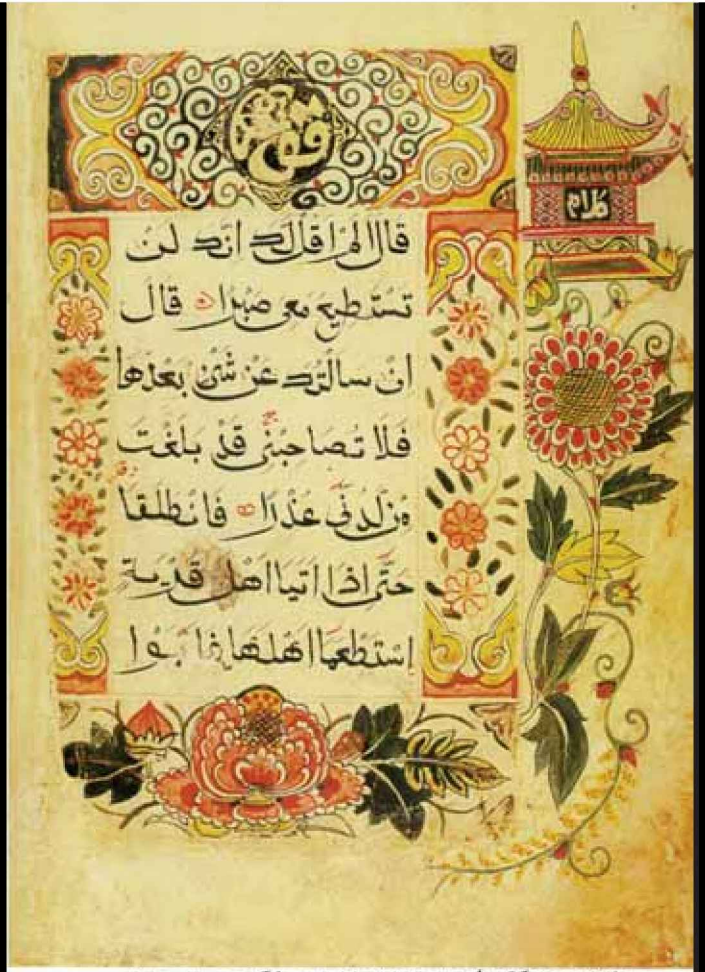 كلام
قال الم اقل لك انك لن
تستطيع معي صبرا قال
ان سالتك عن شئ بعدها
فلا تصاحبني قد بلغت
من لدني عذرا فانطلقا
حتى اذا اتيا اهل قرية
استطعما اهلها فابوا